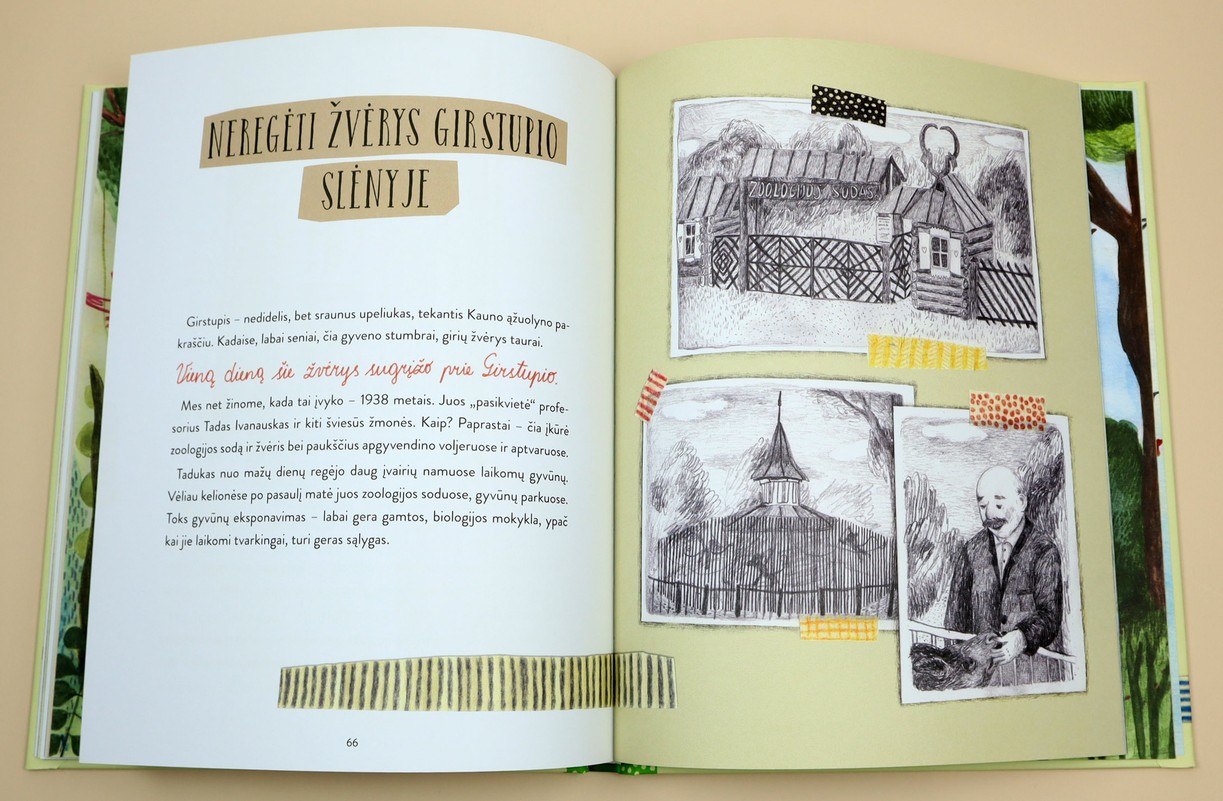 NEREGĖTI ŽVĖRYS GIRSTUPIO
SLĖNYJE
Girstupis – nedidelis, bet sraunus upeliukas, tekantis Kauno ąžuolyno pa-
kraščiu. Kadaise, labai seniai, čia gyveno stumbrai, girių žvėrys taurai.
Vieną dieną šie žvėrys sugrįžo prie Girstupio.
Mes net žinome, kada tai įvyko – 1938 metais. Juos „pasikvietė“ profe-
sorius Tadas Ivanauskas ir kiti šviesūs žmonės. Kaip? Paprastai – čia įkūrė
zoologijos sodą ir žvėris bei paukščius apgyvendino voljeruose ir aptvaruose.
Tadukas nuo mažų dienų regėjo daug įvairių namuose laikomų gyvūnų.
Vėliau kelionėse po pasaulį matė juos zoologijos soduose, gyvūnų parkuose.
Toks gyvūnų eksponavimas – labai gera gamtos, biologijos mokykla, ypač
kai jie laikomi tvarkingai, turi geras sąlygas.
66
ZOOLOGIJOS SODAS